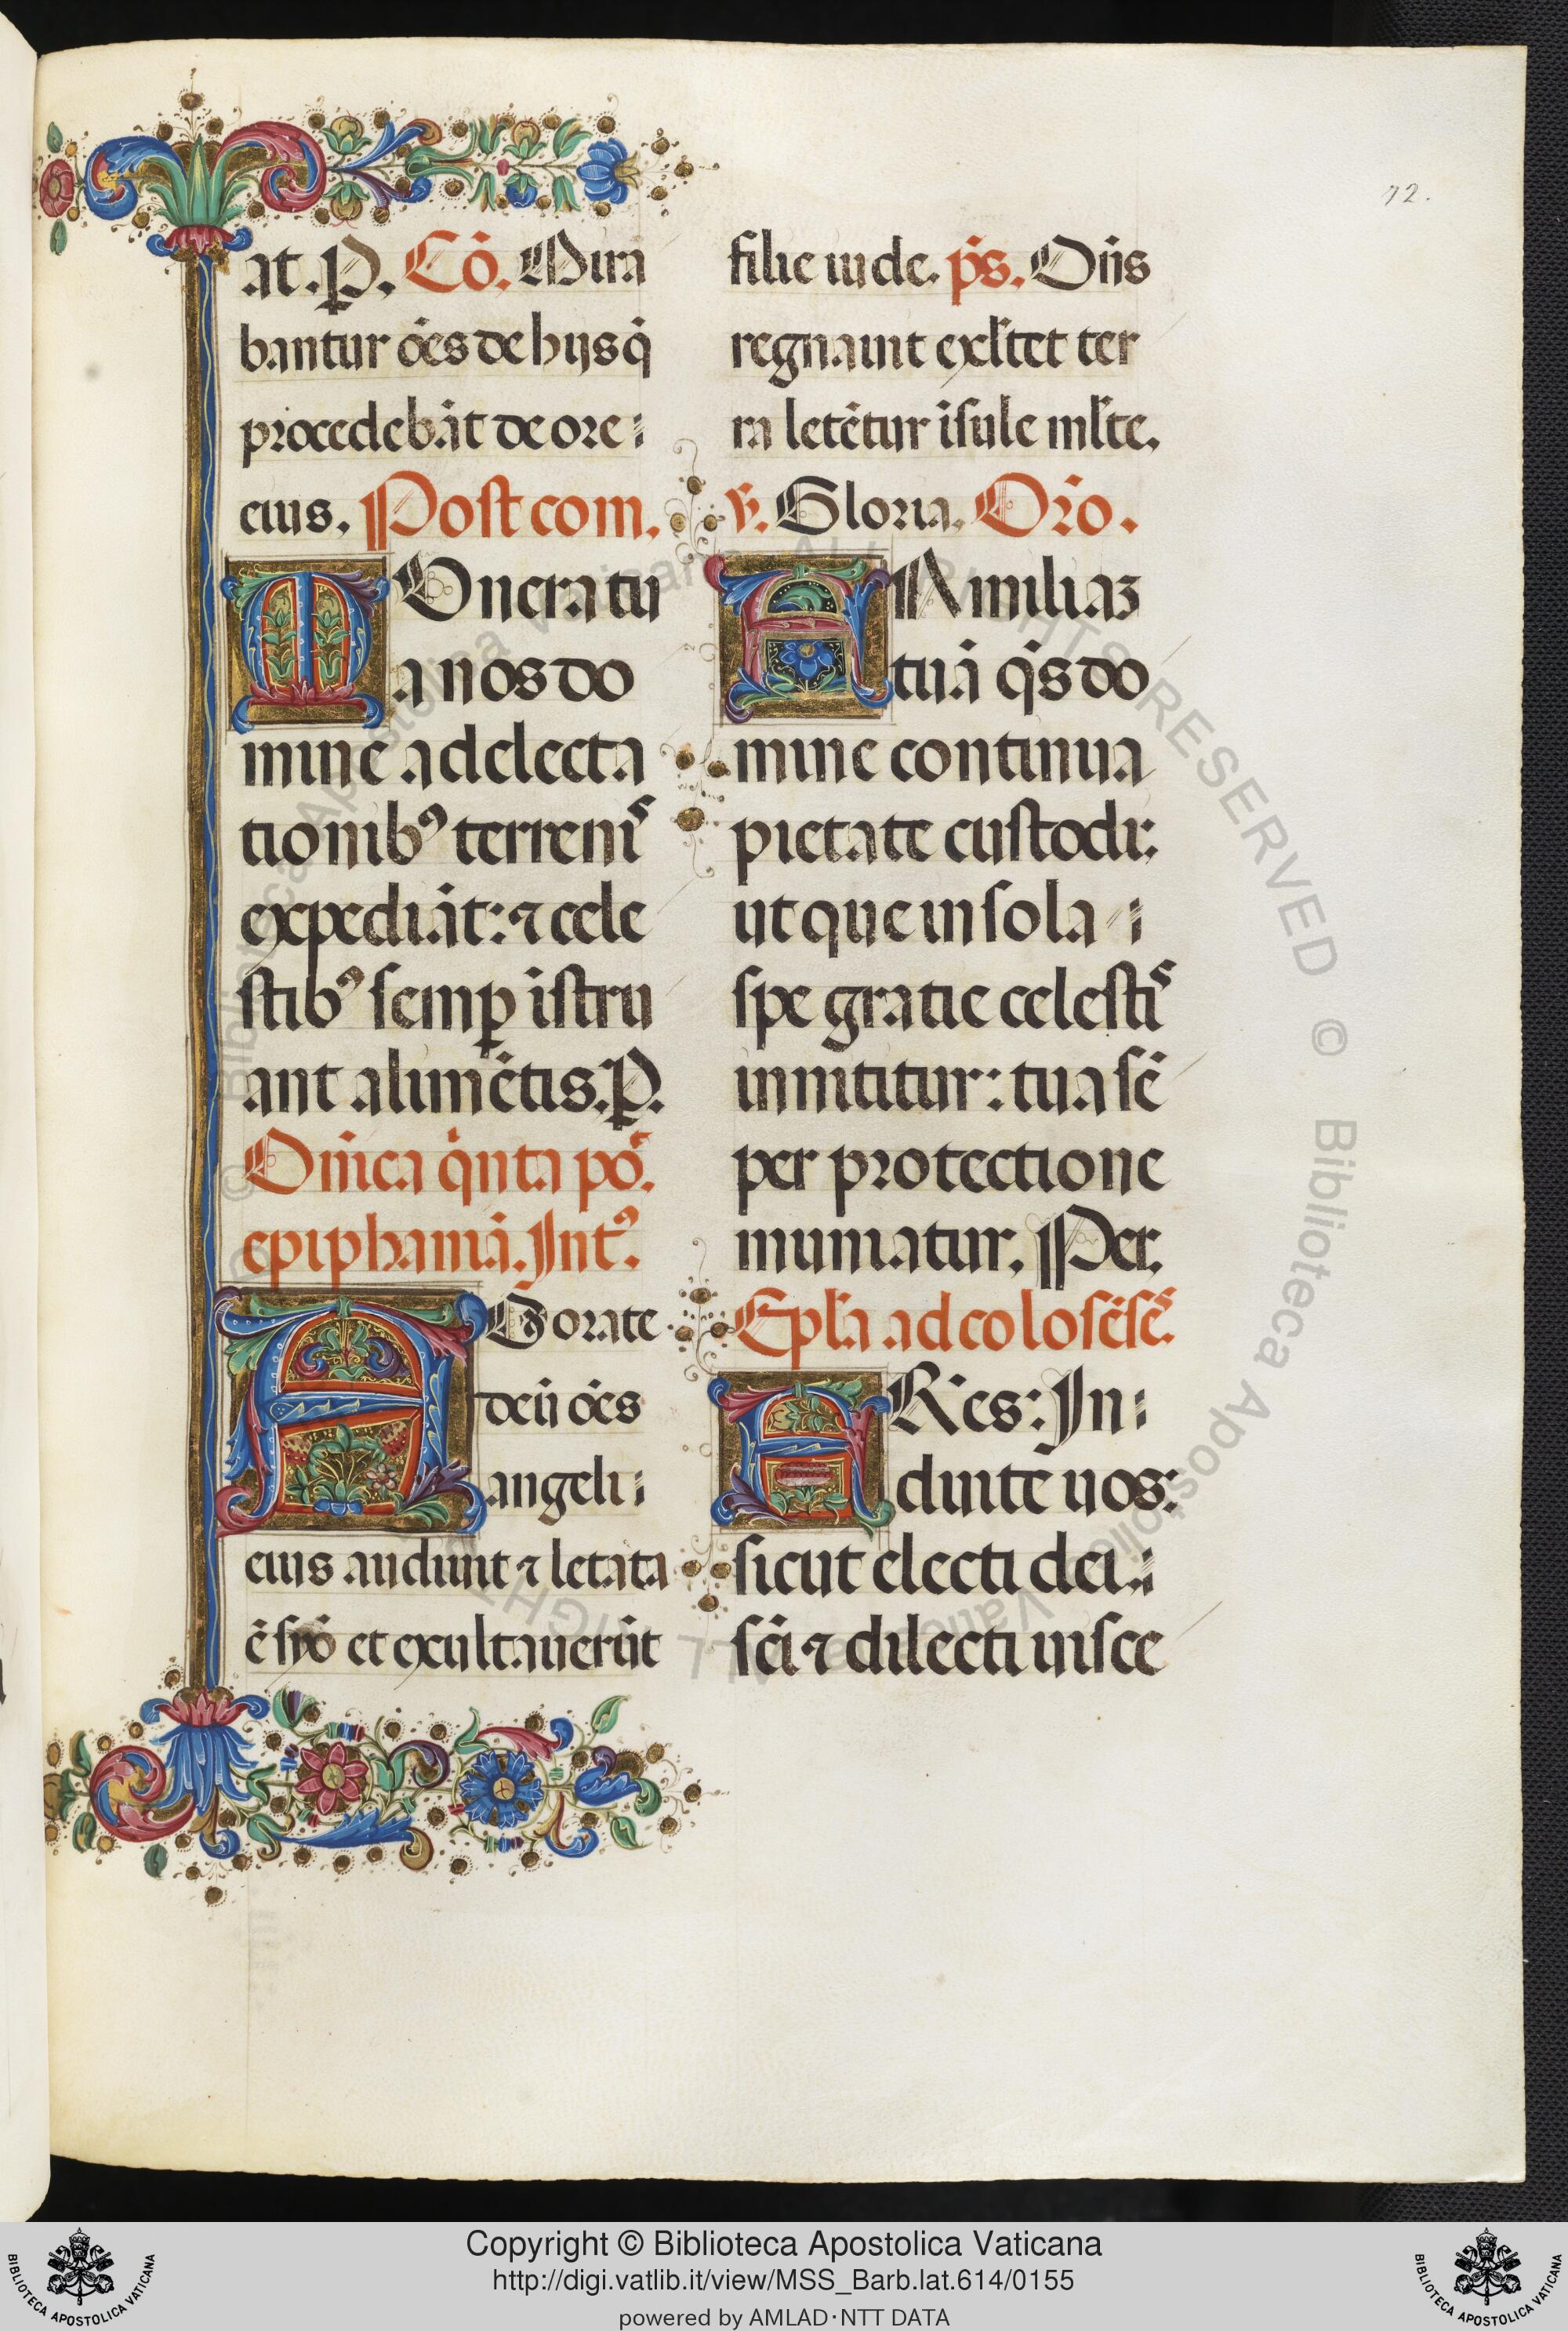 72.
at. P. Cō. Mira
bantur ōēs de hijs q̄
procedebāt de ore:
eius. Post com.
MUnera tu
a nos do
mine a delecta
tionibꝰ terrenis
expediāt: ⁊ cele
stibꝰ semꝑ īstru
ant alimētis. P.
Dn̄ica q̄nta pō.
epiphaniā. Intꝰ.
ADorate
deū ōēs
angeli:
eius audiuit ⁊ letata
ē syō et exultauerūt
filie iude. p̄s. Dn̄s
regnauit exl̄tet ter
ra letētur īsule ml̄te.
v̄. Gloria. Orō.
FAmiliaꝫ
tuā q̄s do
mine continua
pietate custodi:
ut que in sola
spe gratie celestis
innititur: tua sē
per protectione
muniatur. Per.
Epl̄a ad colosēsēs.
FRēs: In:
duite uos:
sicut electi dei:
scī ⁊ dilecti uisce
© Biblioteca Apostolica Vaticana ALL RIGHTS RESERVED © Biblioteca Apostolica Vaticana ALL RIGHTS
BIBLIOTECA APOSTOLICA VATICANA
Copyright © Biblioteca Apostolica Vaticana
http://digi.vatlib.it/view/MSS_Barb.lat.614/0155
powered by AMLAD·NTT DATA
BIBLIOTECA APOSTOLICA VATICANA